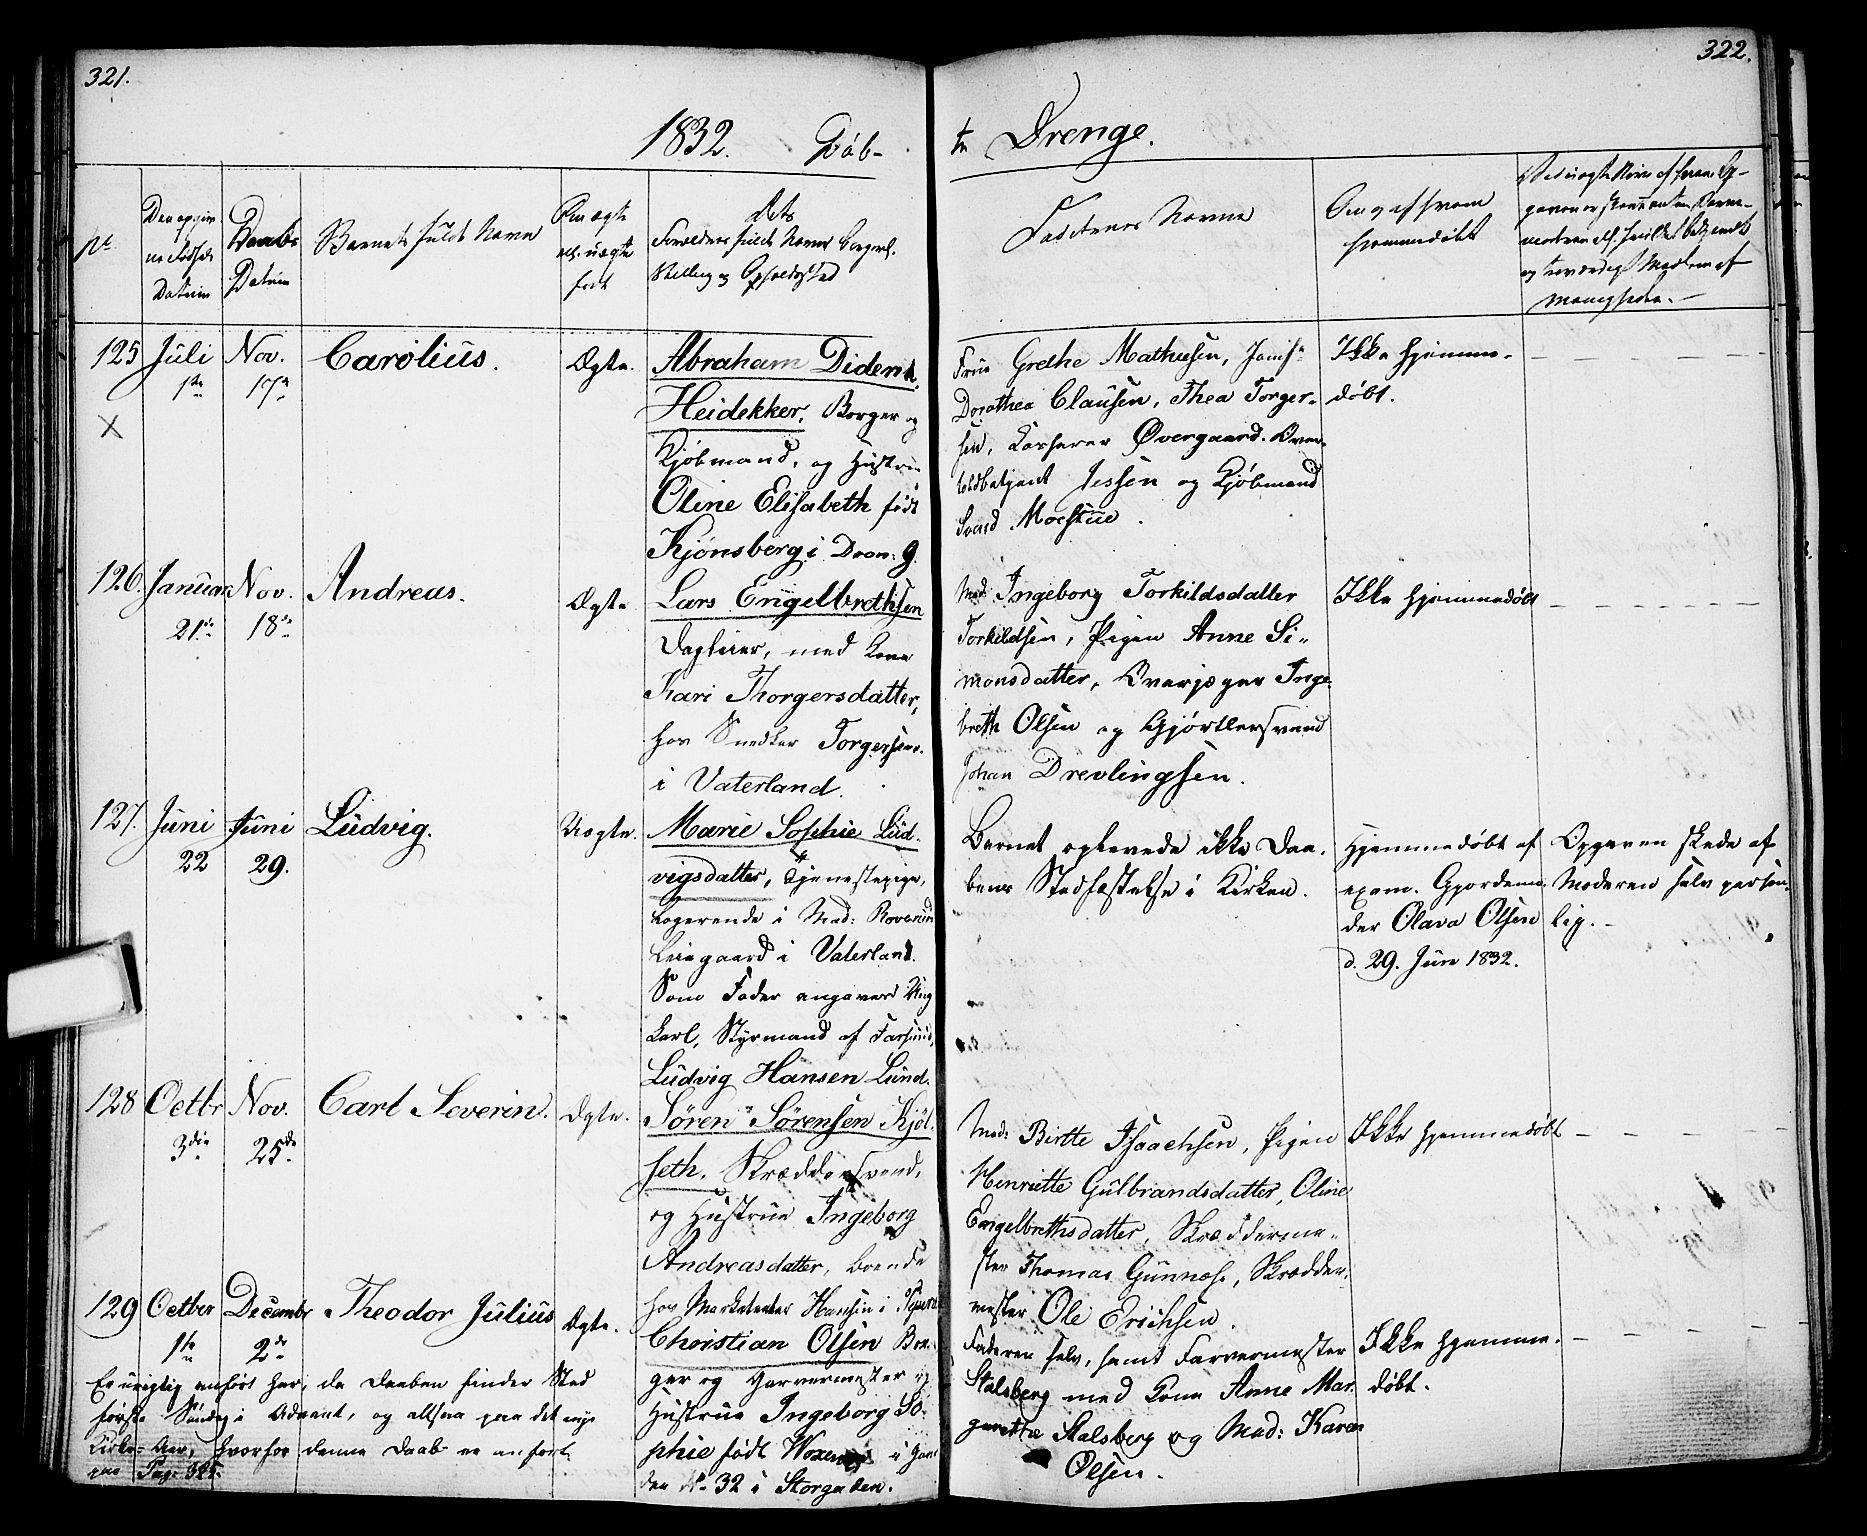 321.
322.
1832. Døb-
te Drenge.
No
Den opgivne Fødsels Datum
Daabs Datum
Barnets fulde Navn
Om ægte ell. uægte født
dets
Forældres fulde Navne Borgerl.
Stilling og Opholdssted
Faddernes Navne
Om og af hvem
hjemmedøbt
125
Juli
1ste
Nov.
17de
Carolius.
Ægte.
Abraham Diderik
Heidekker, Borger og
Kjøbmand, og Hustrue
Oline Elisabeth født
Kjønsberg i Dron: g.
Frue Grethe Mathiesen, Jomfr
Dorothea Clausen, Thea Torger-
sen, Overgaard.
Jessen og Kjøbmand
Svend Moestue.
Ikke hjemme-
døbt.
X
126.
Januar
21de
Nov.
18de
Andreas.
Ægte
Lars Engelbrethsen
Dagleier, med Kone
Kari Thorgersdatter,
hos Snedker Torgersen
i Vaterland.
Mad. Ingeborg Torkildsdatter
Torkildsen, Pigen Anne Si-
monsdatter, Overjæger Inge-
breth Olsen og Gjørtlersvend
Johan Drevlingsen.
Ikke hjemmedøbt
127.
Juni
22
Juni
29.
Ludvig.
Uægte.
Marie Sophie Lud-
vigsdatter, Tjenestepige,
Logerende i Mad:
Leiegaard i Vaterland.
Som Fader angaves Ung-
karl, Styrmand af Farsund,
Ludvig Hansen Lund.
Barnet oplevede ikke Daa-
bens Stadfæstelse i Kirken.
Hjemmedøbt af
exam. Gjordemo-
der Olava Olsen
d. 29. Juni 1832.
Opgaven skede af
Moderen selv person-
lig.
128
Octbr
3die
Nov.
25de
Carl Severin.
Ægte.
Søren Sørensen Kjøl-
seth, Skræddersvend,
og Hustrue Ingeborg
Andreasdatter, boende
hos Marketenter Hansen i
Mad: Birtte Isaachsen, Pigen
Henriette Gulbrandsdatter, Oline
Engelbrethsdatter, Skrædderme-
ster Thomas Gunnæs, Skrædder-
mester Ole Erichsen.
Ikke hjemmedøbt
129
Octber
1ste
Decembr
2de
Theodor Julius
Ægte.
Christian Olsen Bor-
ger og Garvermester og
Hustrue Ingeborg So-
phie født i Gaar-
den No 32 i Storgaden.
Faderen selv, samt Farvermester
Stalsberg med Kone Anne Mar-
garethe Stalsberg og Mad: Karen
Olsen.
Ikke hjemme-
døbt.
Er urigtig anført her, da Daaben finder Sted
første Søndag i Advent, og altsaa paa det nye
Kirke-Aar, hvorfor denne Daab er anført
paa Pag. 325.